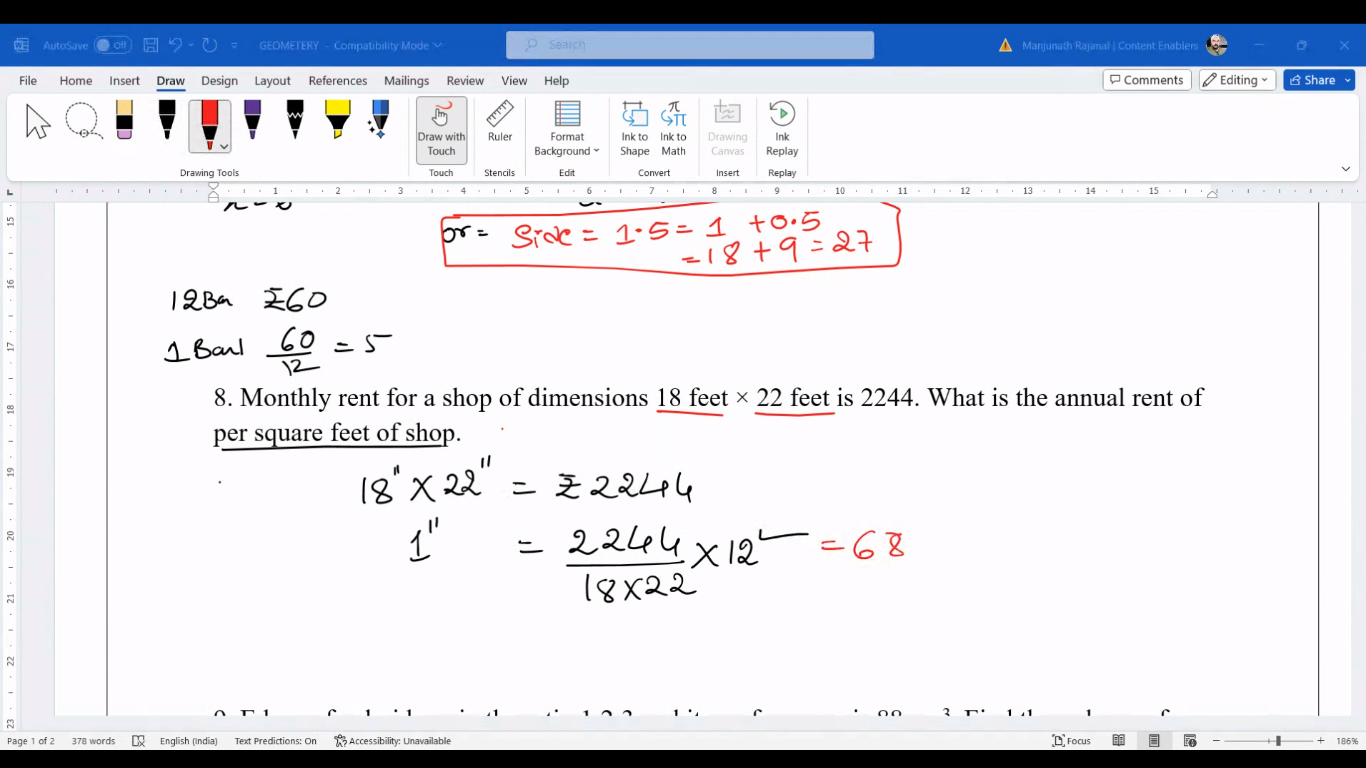 AutoSave Off GEOMETERY - Compatibility Mode Search Manjunath Rajanal | Content Enablers
File Home Insert Draw Design Layout References Mailings Review View Help Comments Editing Share
Draw with Touch Ruler Format Background Ink to Shape Ink to Math Drawing Canvas Ink Replay
Drawing Tools Touch Stencils Edit Convert Insert Replay
1 2 3 4 5 6 7 8 9 10 11 12 13 14 15
or = Side = 1.5 = 1 + 0.5
= 18 + 9 = 27
12 Bar ₹60
1 Barl 60/12 = 5
8. Monthly rent for a shop of dimensions 18 feet × 22 feet is 2244. What is the annual rent of
per square feet of shop.
18" X 22" = ₹2244
1" = 2244/18X22 X 12 = 68
Page 1 of 2 378 words English (India) Text Predictions: On Accessibility: Unavailable Focus 186%